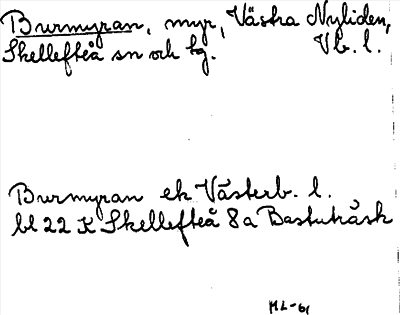 Burmyran, myr, Västra Nyliden,
Skellefteå sn och tg. Vb. l.
Burmyran ek Västerb. l.
bl 22 K Skellefteå 8a Bastuträsk
ML-61